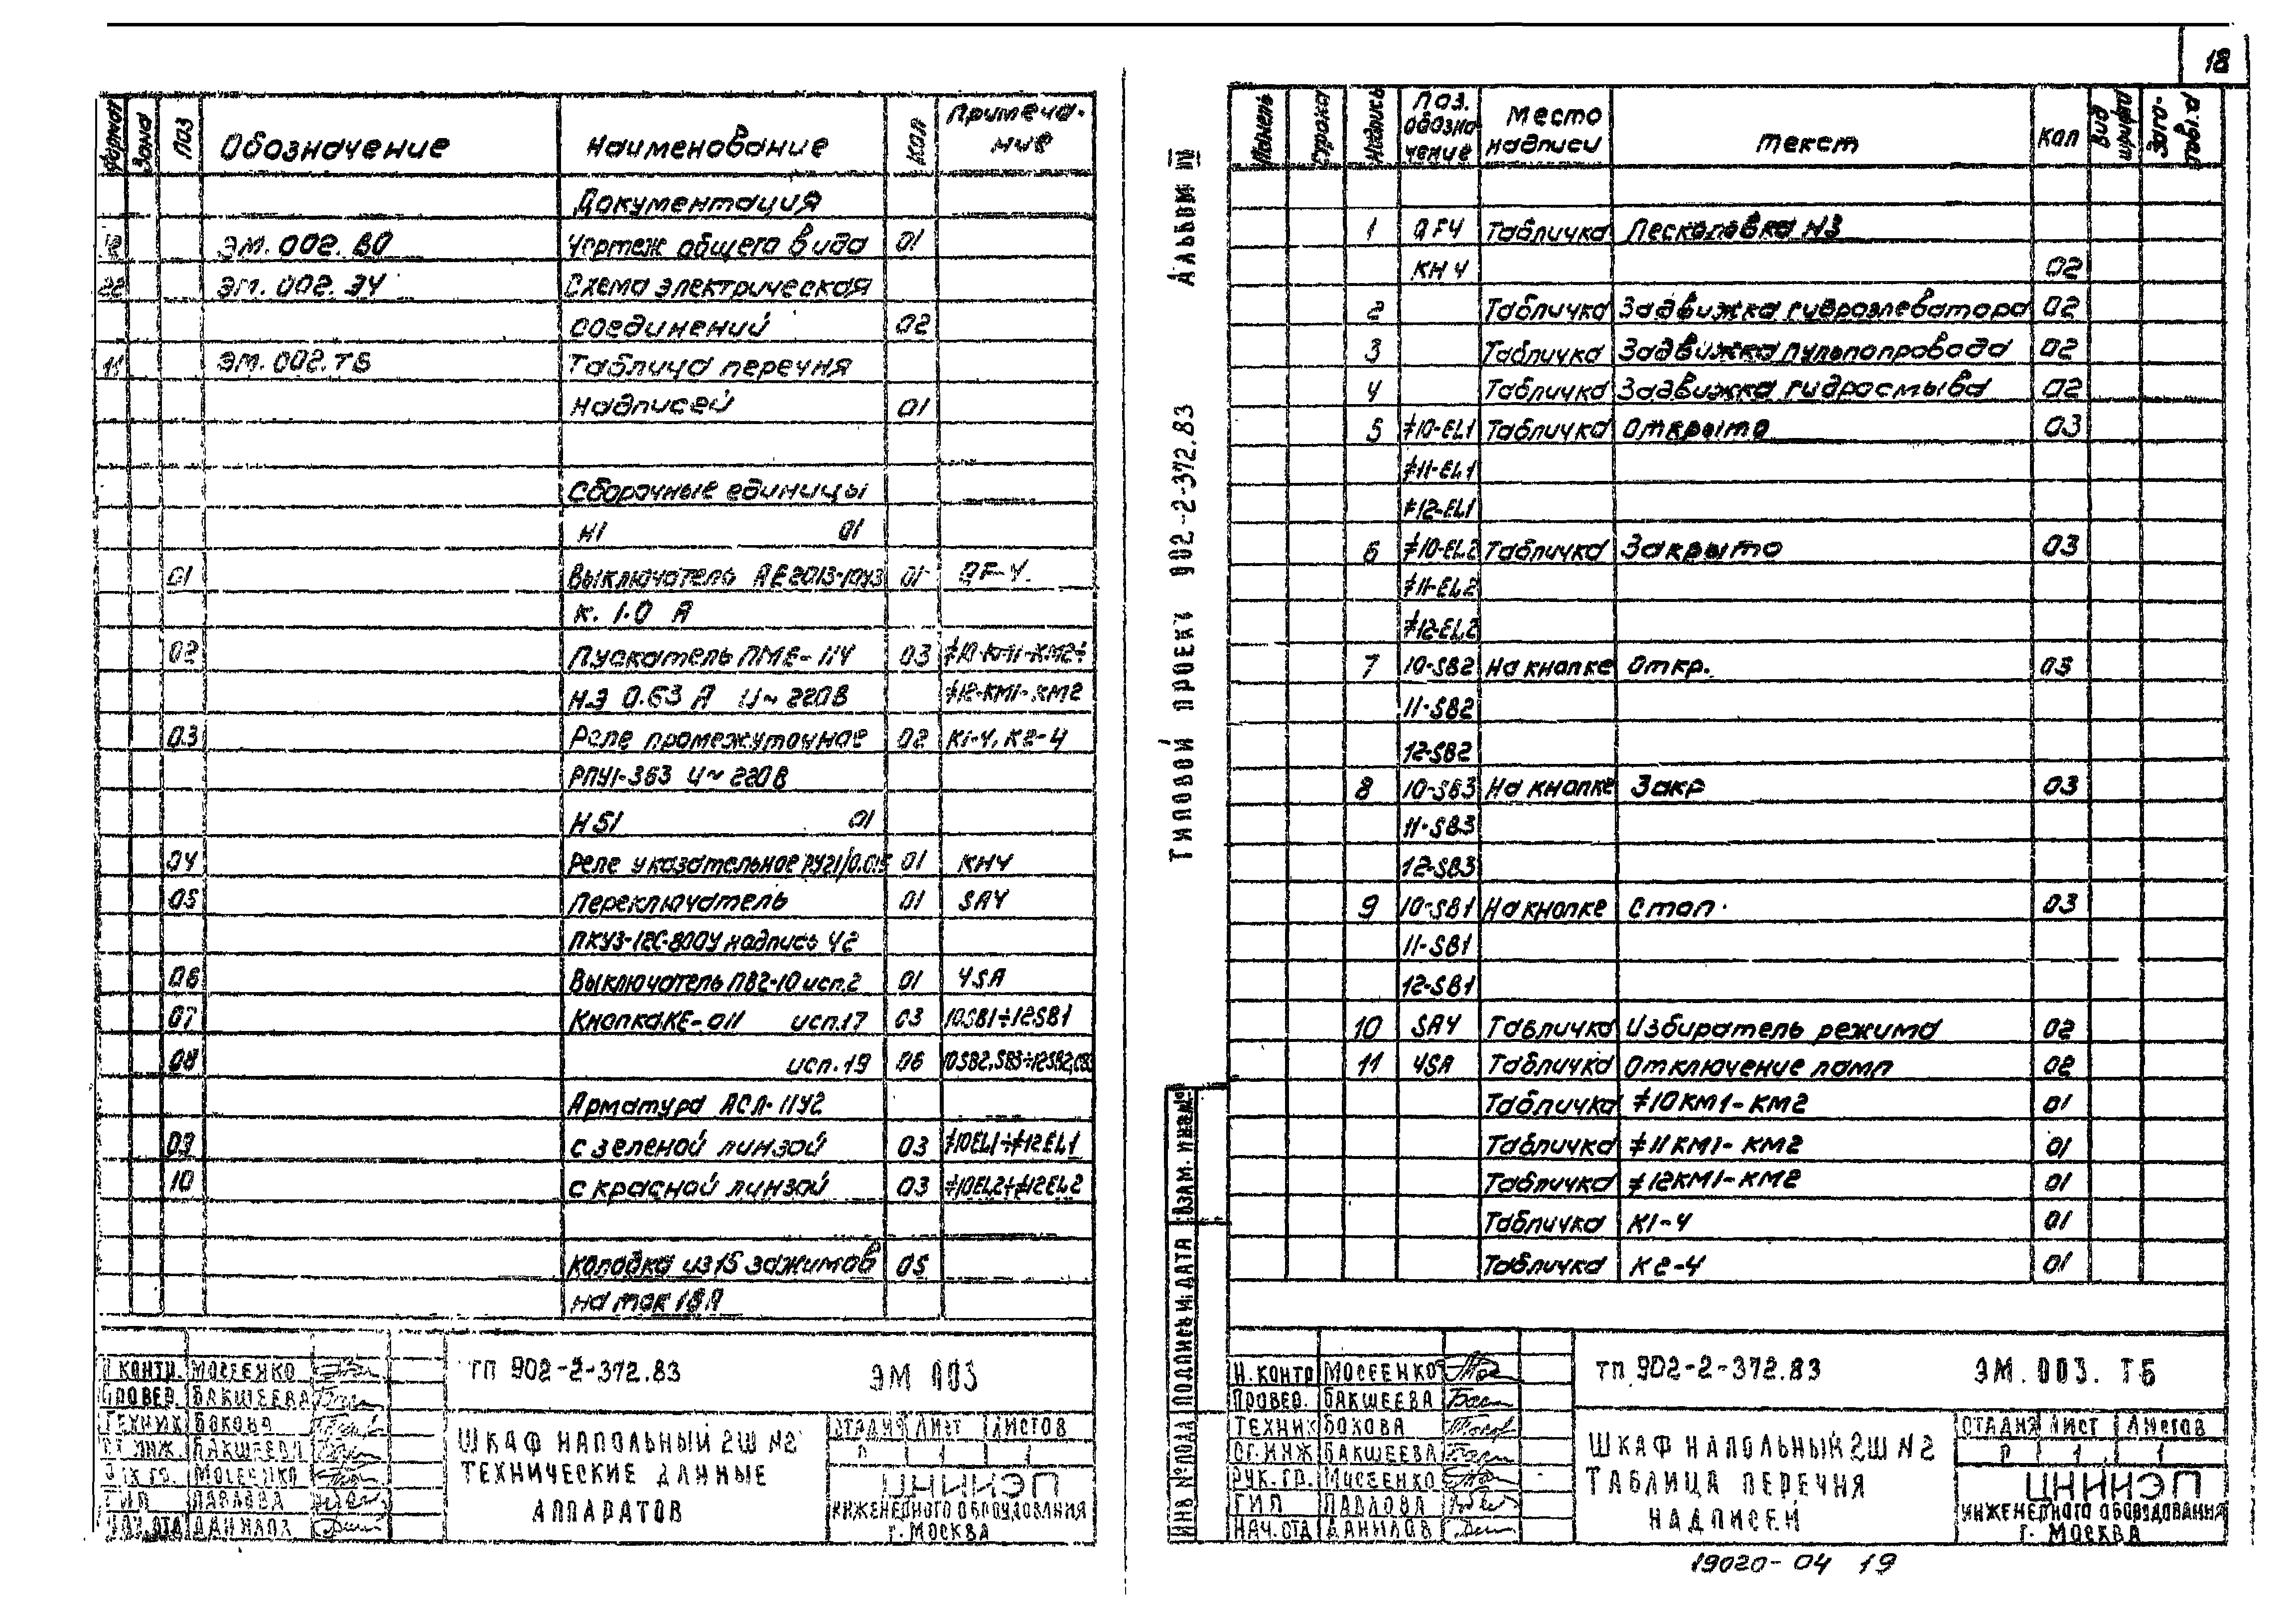 18
Формат Зона Поз Обозначение Наименование Кол Примеча-
ние
Документация
12 ЭМ. 002. ВО Чертеж общего вида 01
22 ЭМ. 002. Э4 Схема электрическая
соединений 02
11 ЭМ. 002. ТБ Таблица перечня
надписей 01
Сборочные единицы
Н1 01
01 Выключатель АЕ2013-10У3 01 QF-4.
К. 1.0 А
02 Пускатель ПМЕ-114 03 ≠10-КМ1-КМ2÷
Н.Э 0.63 А U~220В ≠12-КМ1-КМ2
03 Реле промежуточное 02 К1-4, К2-4
РПУ1-363 U~220В
Н51 01
04 Реле указательное РУ21/0.015 01 КН4
05 Переключатель 01 SА4
ПКУ3-12С-800У надпись 42
06 Выключатель ПВ2-10 исп.2 01 4SА
07 Кнопка КЕ-011 исп.17 03 10SB1÷12SB1
08 исп.19 06 10SB2,SB3÷12SB2,SB3
Арматура АСЛ-11У2
09 с зеленой линзой 03 ≠10EL1÷≠12EL1
10 с красной линзой 03 ≠10EL2÷≠12EL2
колодка из 15 зажимов 05
на ток 18А
Н.КОНТР. МОСЕЕНКО
ПРОВЕР. БАКШЕЕВА
ТЕХНИК БОКОВА
СТ.ИНЖ. БАКШЕЕВА
РУК.ГР. МОСЕЕНКО
ГИП ПАВЛОВА
НАЧ.ОТД ДАНИЛОВ
ТП 902-2-372.83 ЭМ 003
ШКАФ НАПОЛЬНЫЙ 2Ш №2
ТЕХНИЧЕСКИЕ ДАННЫЕ
АППАРАТОВ
СТАДИЯ ЛИСТ ЛИСТОВ
Р 1 1
ЦНИИЭП
ИНЖЕНЕРНОГО ОБОРУДОВАНИЯ
Г. МОСКВА
АЛЬБОМ IV
ТИПОВОЙ ПРОЕКТ 902-2-372.83
ИНВ № ПОДЛ ПОДПИСЬ И ДАТА ВЗАМ. ИНВ.№
Панель Строка Надпись Поз.
обозна-
чение Место
надписи Текст Кол Вид
шрифта Заго-
тов.
1 QF4 Табличка Песколовка N3
КН4 02
2 Табличка Задвижка гидроэлеватора 02
3 Табличка Задвижка пульпопровода 02
4 Табличка Задвижка гидросмыва 02
5 ≠10-EL1 Табличка Открыто 03
≠11-EL1
≠12-EL1
6 ≠10-EL2 Табличка Закрыто 03
≠11-EL2
≠12-EL2
7 10-SB2 На кнопке Откр. 03
11-SB2
12-SB2
8 10-SB3 На кнопке Закр 03
11-SB3
12-SB3
9 10-SB1 На кнопке Стоп. 03
11-SB1
12-SB1
10 SА4 Табличка Избиратель режима 02
11 4SА Табличка Отключение ламп 02
Табличка ≠10КМ1-КМ2 01
Табличка ≠11КМ1-КМ2 01
Табличка ≠12КМ1-КМ2 01
Табличка К1-4 01
Табличка К2-4 01
Н.КОНТР МОСЕЕНКО
ПРОВЕР. БАКШЕЕВА
ТЕХНИК БОКОВА
СТ.ИНЖ БАКШЕЕВА
РУК.ГР. МОСЕЕНКО
ГИП ПАВЛОВА
НАЧ.ОТД ДАНИЛОВ
ТП 902-2-372.83 ЭМ. 003. ТБ
ШКАФ НАПОЛЬНЫЙ 2Ш №2
ТАБЛИЦА ПЕРЕЧНЯ
НАДПИСЕЙ
СТАДИЯ ЛИСТ ЛИСТОВ
Р 1 1
ЦНИИЭП
ИНЖЕНЕРНОГО ОБОРУДОВАНИЯ
Г. МОСКВА
19020-04 19